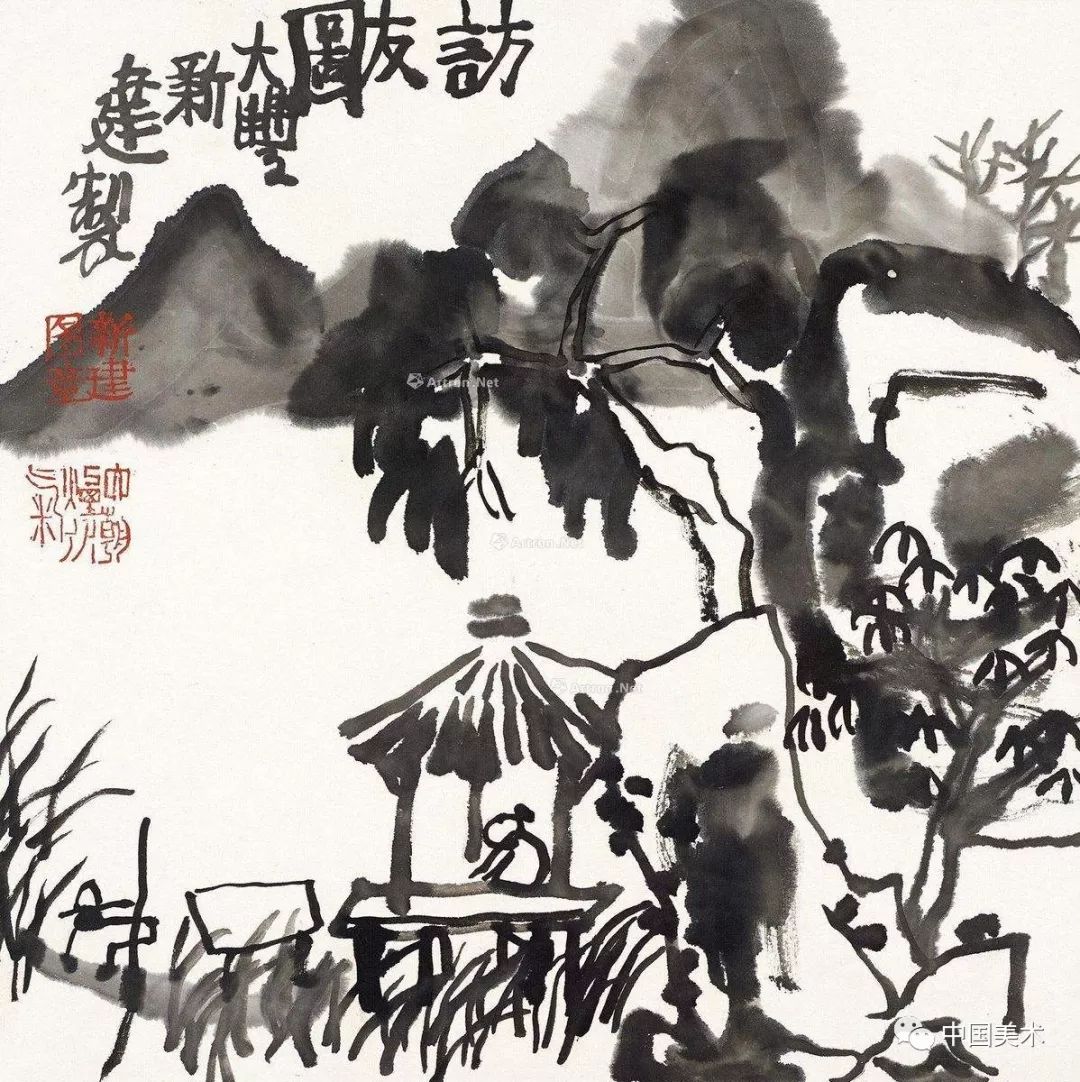 訪友圖
大豐
新
建製
新建
Artron.Net
Artron.Net
Artron.Net
中国美术